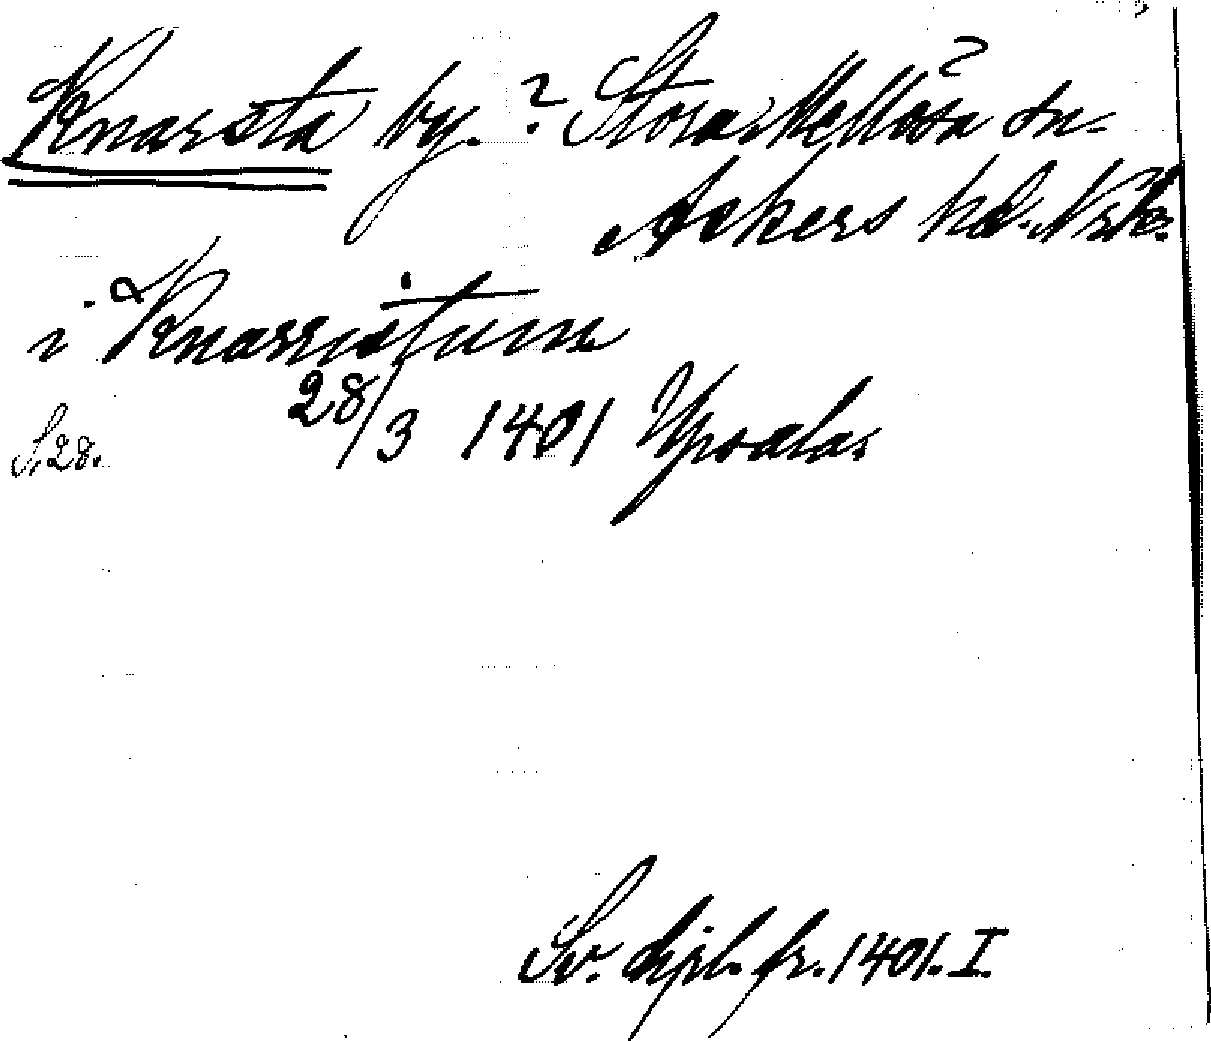 Knarsta by. ? Stora Mellösa sn.
Askers hd. Nrk.
i Knarristum
S. 28. 28/3 1401 Upsala.
Sv. dipl. fr. 1401. I.